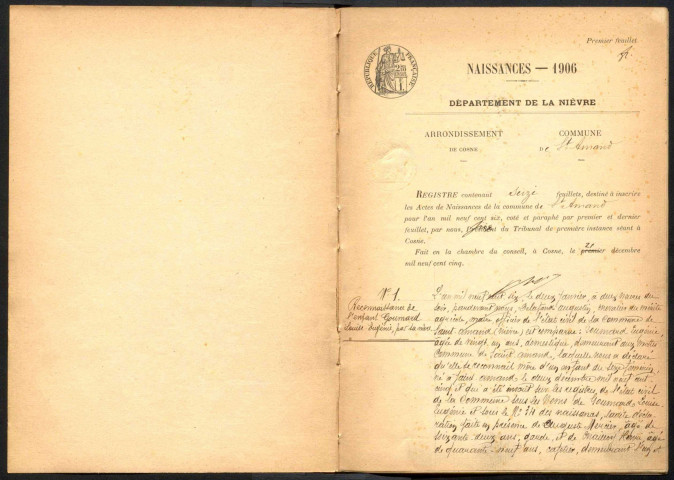 Premier feuillet
RÉPUBLIQUE FRANÇAISE
NAISSANCES — 1906
DÉPARTEMENT DE LA NIÈVRE
ARRONDISSEMENT
DE COSNE
COMMUNE
DE St Amand
REGISTRE contenant Seize feuillets, destiné à inscrire
les Actes de Naissances de la commune de St Amand
pour l'an mil neuf cent six, coté et paraphé par premier et dernier
feuillet, par nous, du Tribunal de première instance séant à
Cosne.
Fait en la chambre du conseil, à Cosne, le 21 décembre
mil neuf cent cinq.
N° 1.
Reconnaissance de
l'enfant Goumard
Louise Eugénie, par la mère
L'an mil neuf cent six, le deux janvier, à deux heures du
soir, pardevant nous, Augustin, chevalier du mérite
agricole, maire officier de l'état civil de la commune de
Saint Amand (Nièvre) est comparue Goumard Eugénie,
âgée de vingt un ans, domestique, demeurant au
commune de Saint Amand, laquelle nous a déclaré
qu'elle se reconnait mère d'un enfant du sexe féminin,
né à Saint Amand le deux décembre mil neuf cent
cinq et qui a été inscrit sur les registres de l'état civil
de la Commune sous les noms de Goumard Louise
Eugénie et sous le N° 34 des naissances,
faite en présence de Auguste Mercier, âgé de
soixante-deux ans, garde, et de âgé
de quarante-neuf ans, cafetier, demeurant